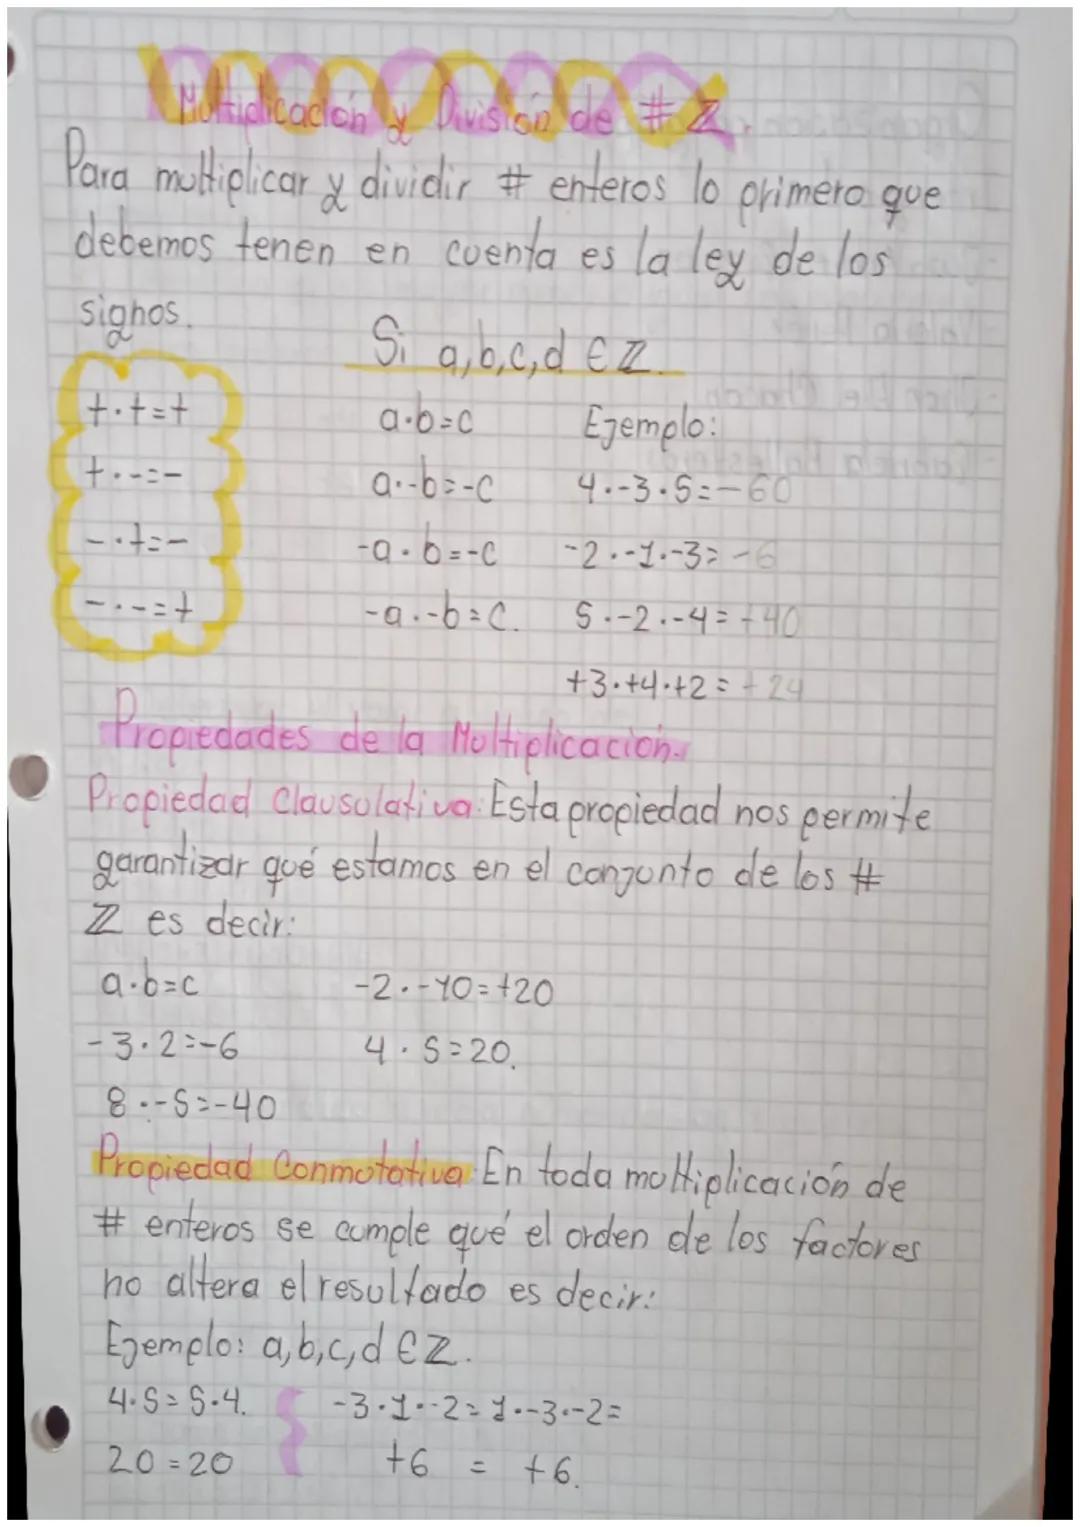 Multiplicación y División de # ℤ.
Para multiplicar y dividir # enteros lo primero que
debemos tenen en cuenta es la ley de los
signos.
Si a,b,c,d ∈ ℤ.
+·+=+
a·b=c
Ejemplo:
+·-=-
a·-b=-c
4·-3·5=-60
-·+=-
-a·b=-c
-2·-1·-3=-6
-·-=+
-a·-b=c.
5·-2·-4=+40
+3·+4·+2=+24
Propiedades de la Multiplicación.
Propiedad Clausulativa: Esta propiedad nos permite
garantizar qué estamos en el conjunto de los #
ℤ es decir:
a·b=c
-2·-10=+20
-3·2=-6
4·5=20.
8·-5=-40
Propiedad Conmutativa: En toda multiplicación de
# enteros se cumple qué el orden de los factores
no altera el resultado es decir:
Ejemplo: a,b,c,d ∈ ℤ.
4·5=5·4.
-3·1·-2=1·-3·-2=
20=20
+6 = +6.